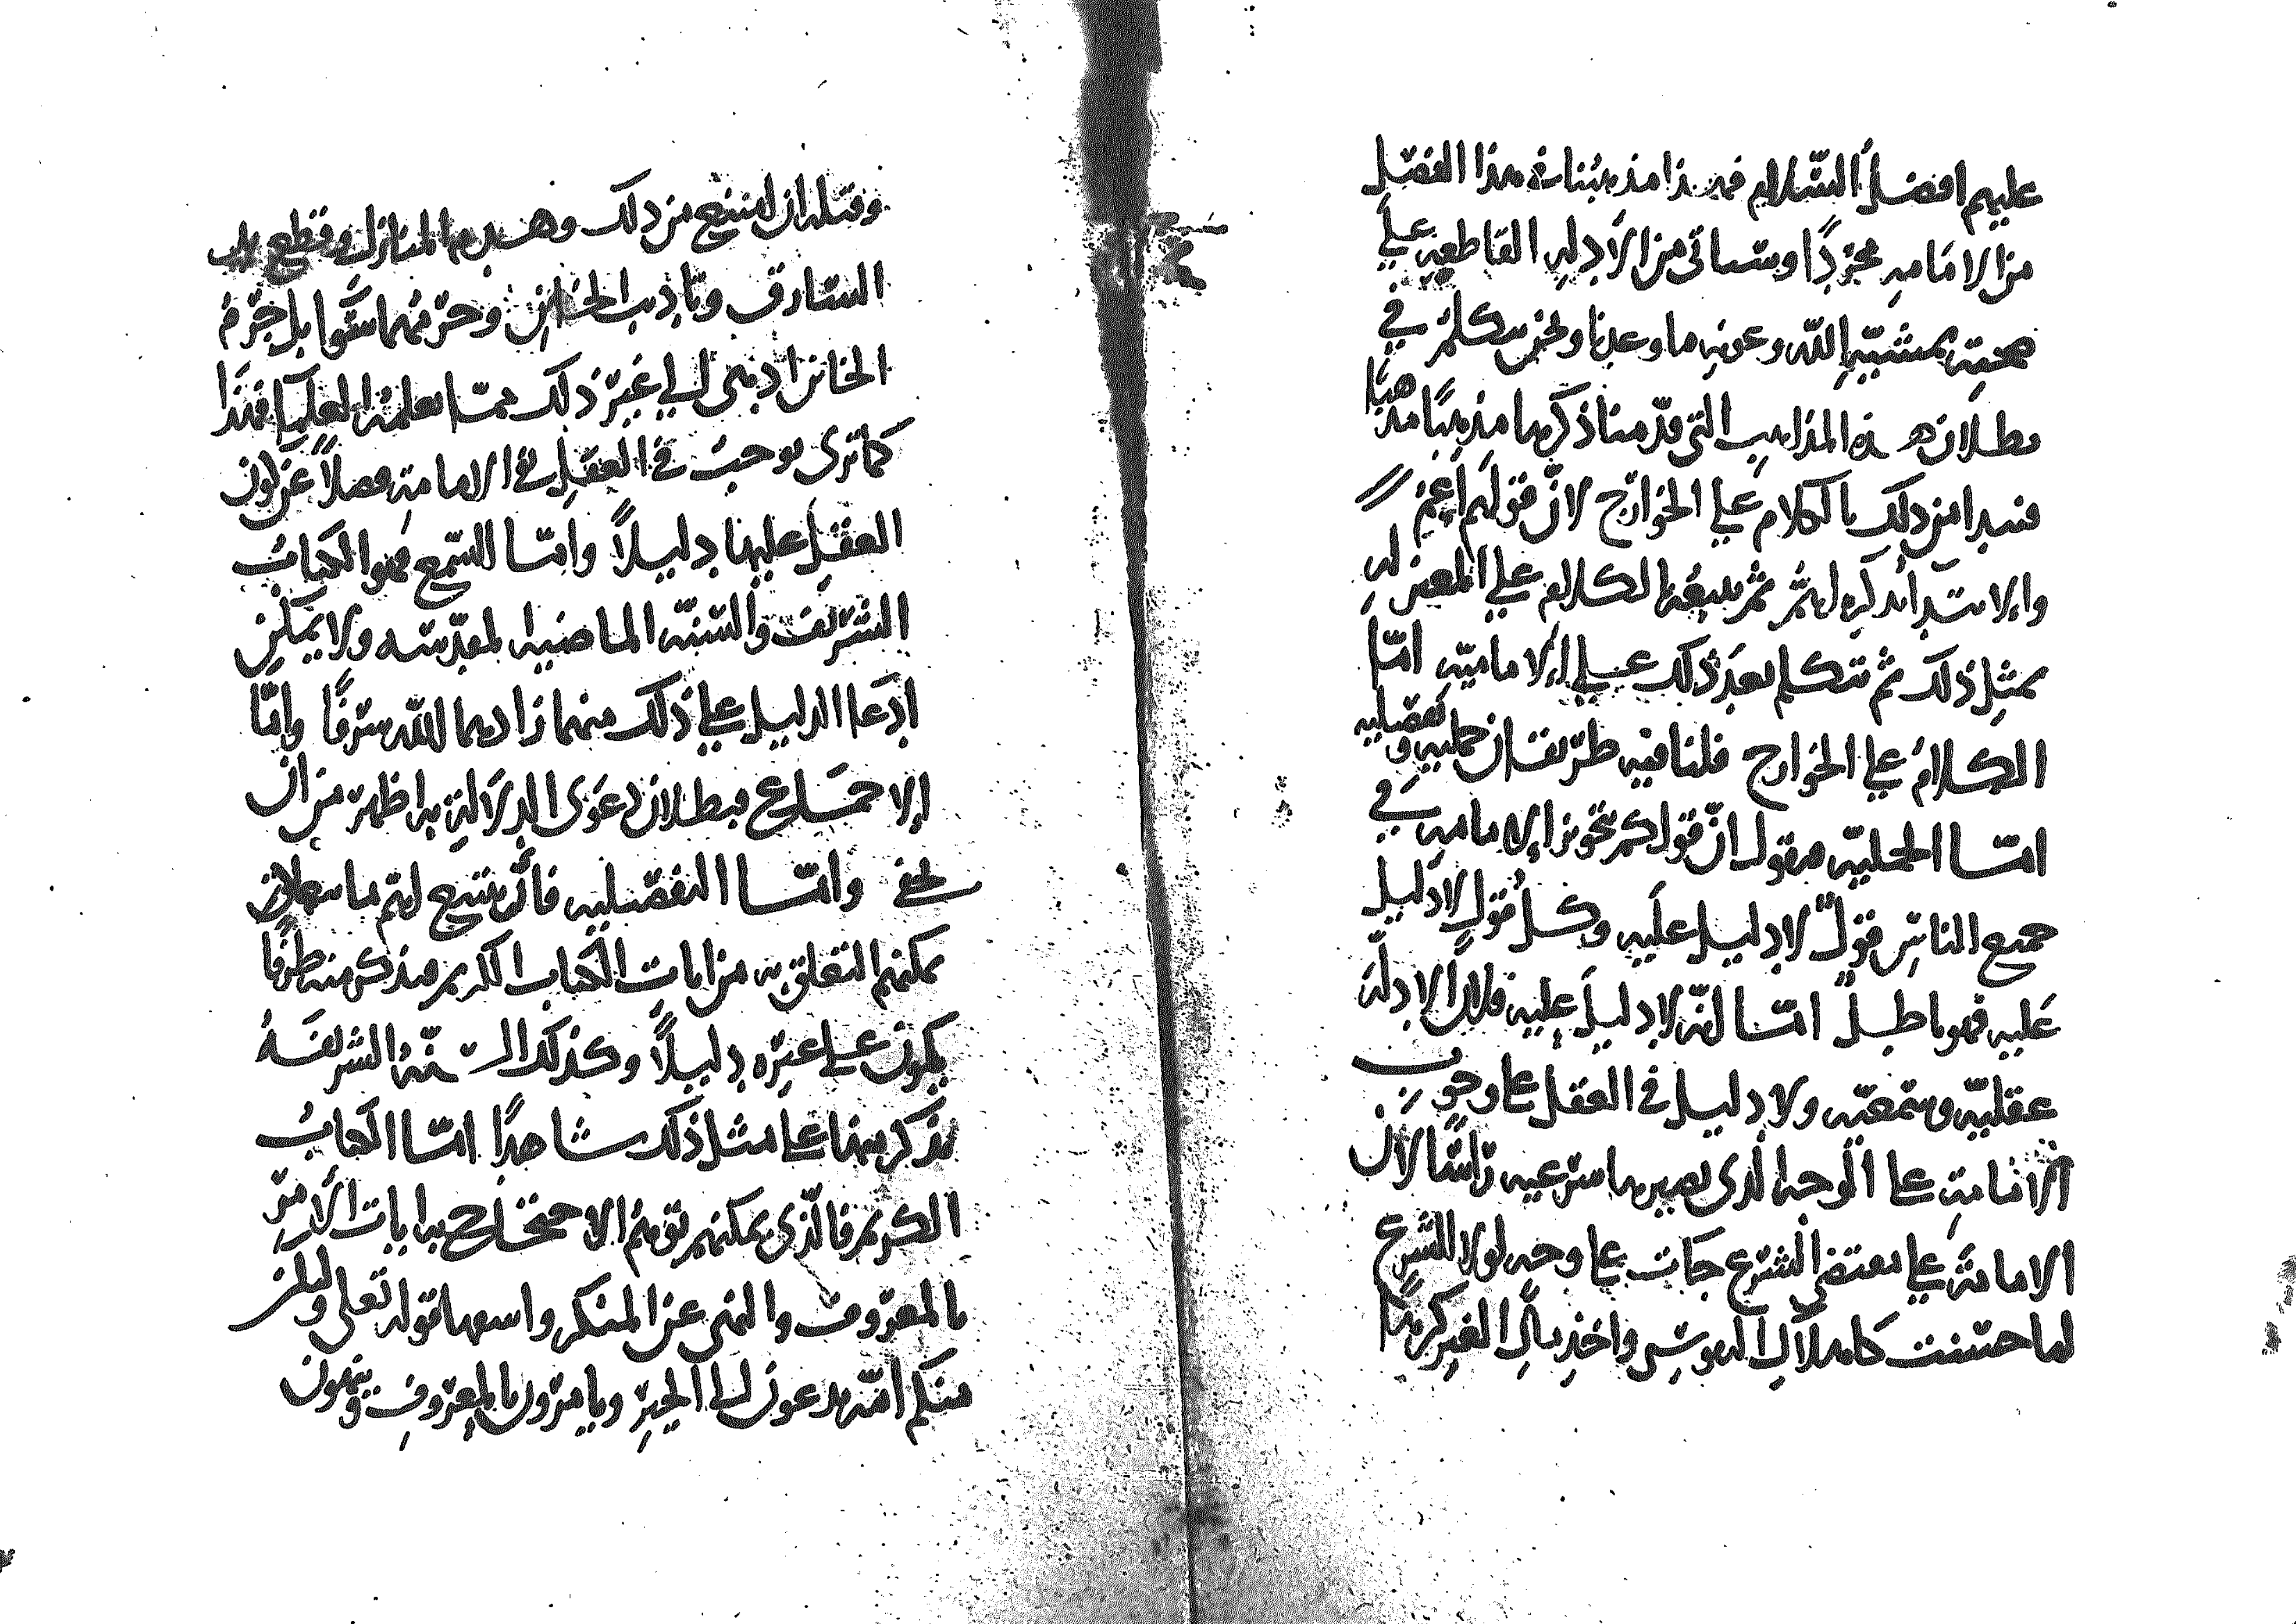 عليهم افضل السلام فهذا مذهبنا في هذا الفصل
من الامامه مجردا وسياتي من الادله القاطعه على
صحته بمشية الله وعونه ما وعدنا ونحن نتكلم في
بطلان هذه المذاهب التي قدمنا ذكرها مذهبا مذهبا
فنبدا من ذلك بالكلام على الخوارج لان قولهم اعم
والابتدا بذكره اهم ثم نتبعه الكلام على المعتزله
بمثل ذلك ثم نتكلم بعد ذلك على الاماميه اما
الكلام على الخوارج فلنا فيه طريقان جمليه وتفصيليه
اما الجمليه فنقول ان قولكم بتجويز الامامه في
جميع الناس قول لا دليل عليه وكل قول لا دليل
عليه فهو باطل اما انه لا دليل عليه فلان الادله
عقليه وسمعيه ولا دليل في العقل على وجوب
الامامه على الوجه الذي نصيرها شرعيه راسا لان
الامامه على مقتضى الشرع جات على وجه لولا الشرع
لما حسنت كاملا الى النفوس واخذ مال الغير كرها
وقتله ان امتنع من ذلك وهدم المنازل وقطع يد
السارق وتاديب الخاين وجرمهما سوا بل جرم
الخاين ادهى الى غير ذلك مما يعلمه العلما فهذا
كما ترى يوجب في العقل نفي الامامه فضلا عن كون
العقل عليها دليلا واما السمع فهو الكتاب
الشريف والسنه الماضيه المقدسه ولا يمكن
ادعا الدليل على ذلك منهما زادهما الله شرفا واما
الاجماع فبطلان دعوى الدلاله به اظهر من ان
يخفى واما التفصيليه فانا نتتبع لهم ما
يمكنهم التعلق به من ايات الكتاب الكريم فنذكر منه طرفا
يكون على غيره دليلا وكذلك السنه الشريفه
نذكر منها على مثل ذلك شاهدا اما الكتاب
الكريم فالذي يمكنهم توهم الاحتجاج به ايات الامر
بالمعروف والنهي عن المنكر واسهها قوله تعالى ولتكن
منكم امه يدعون الى الخير ويامرون بالمعروف وينهون